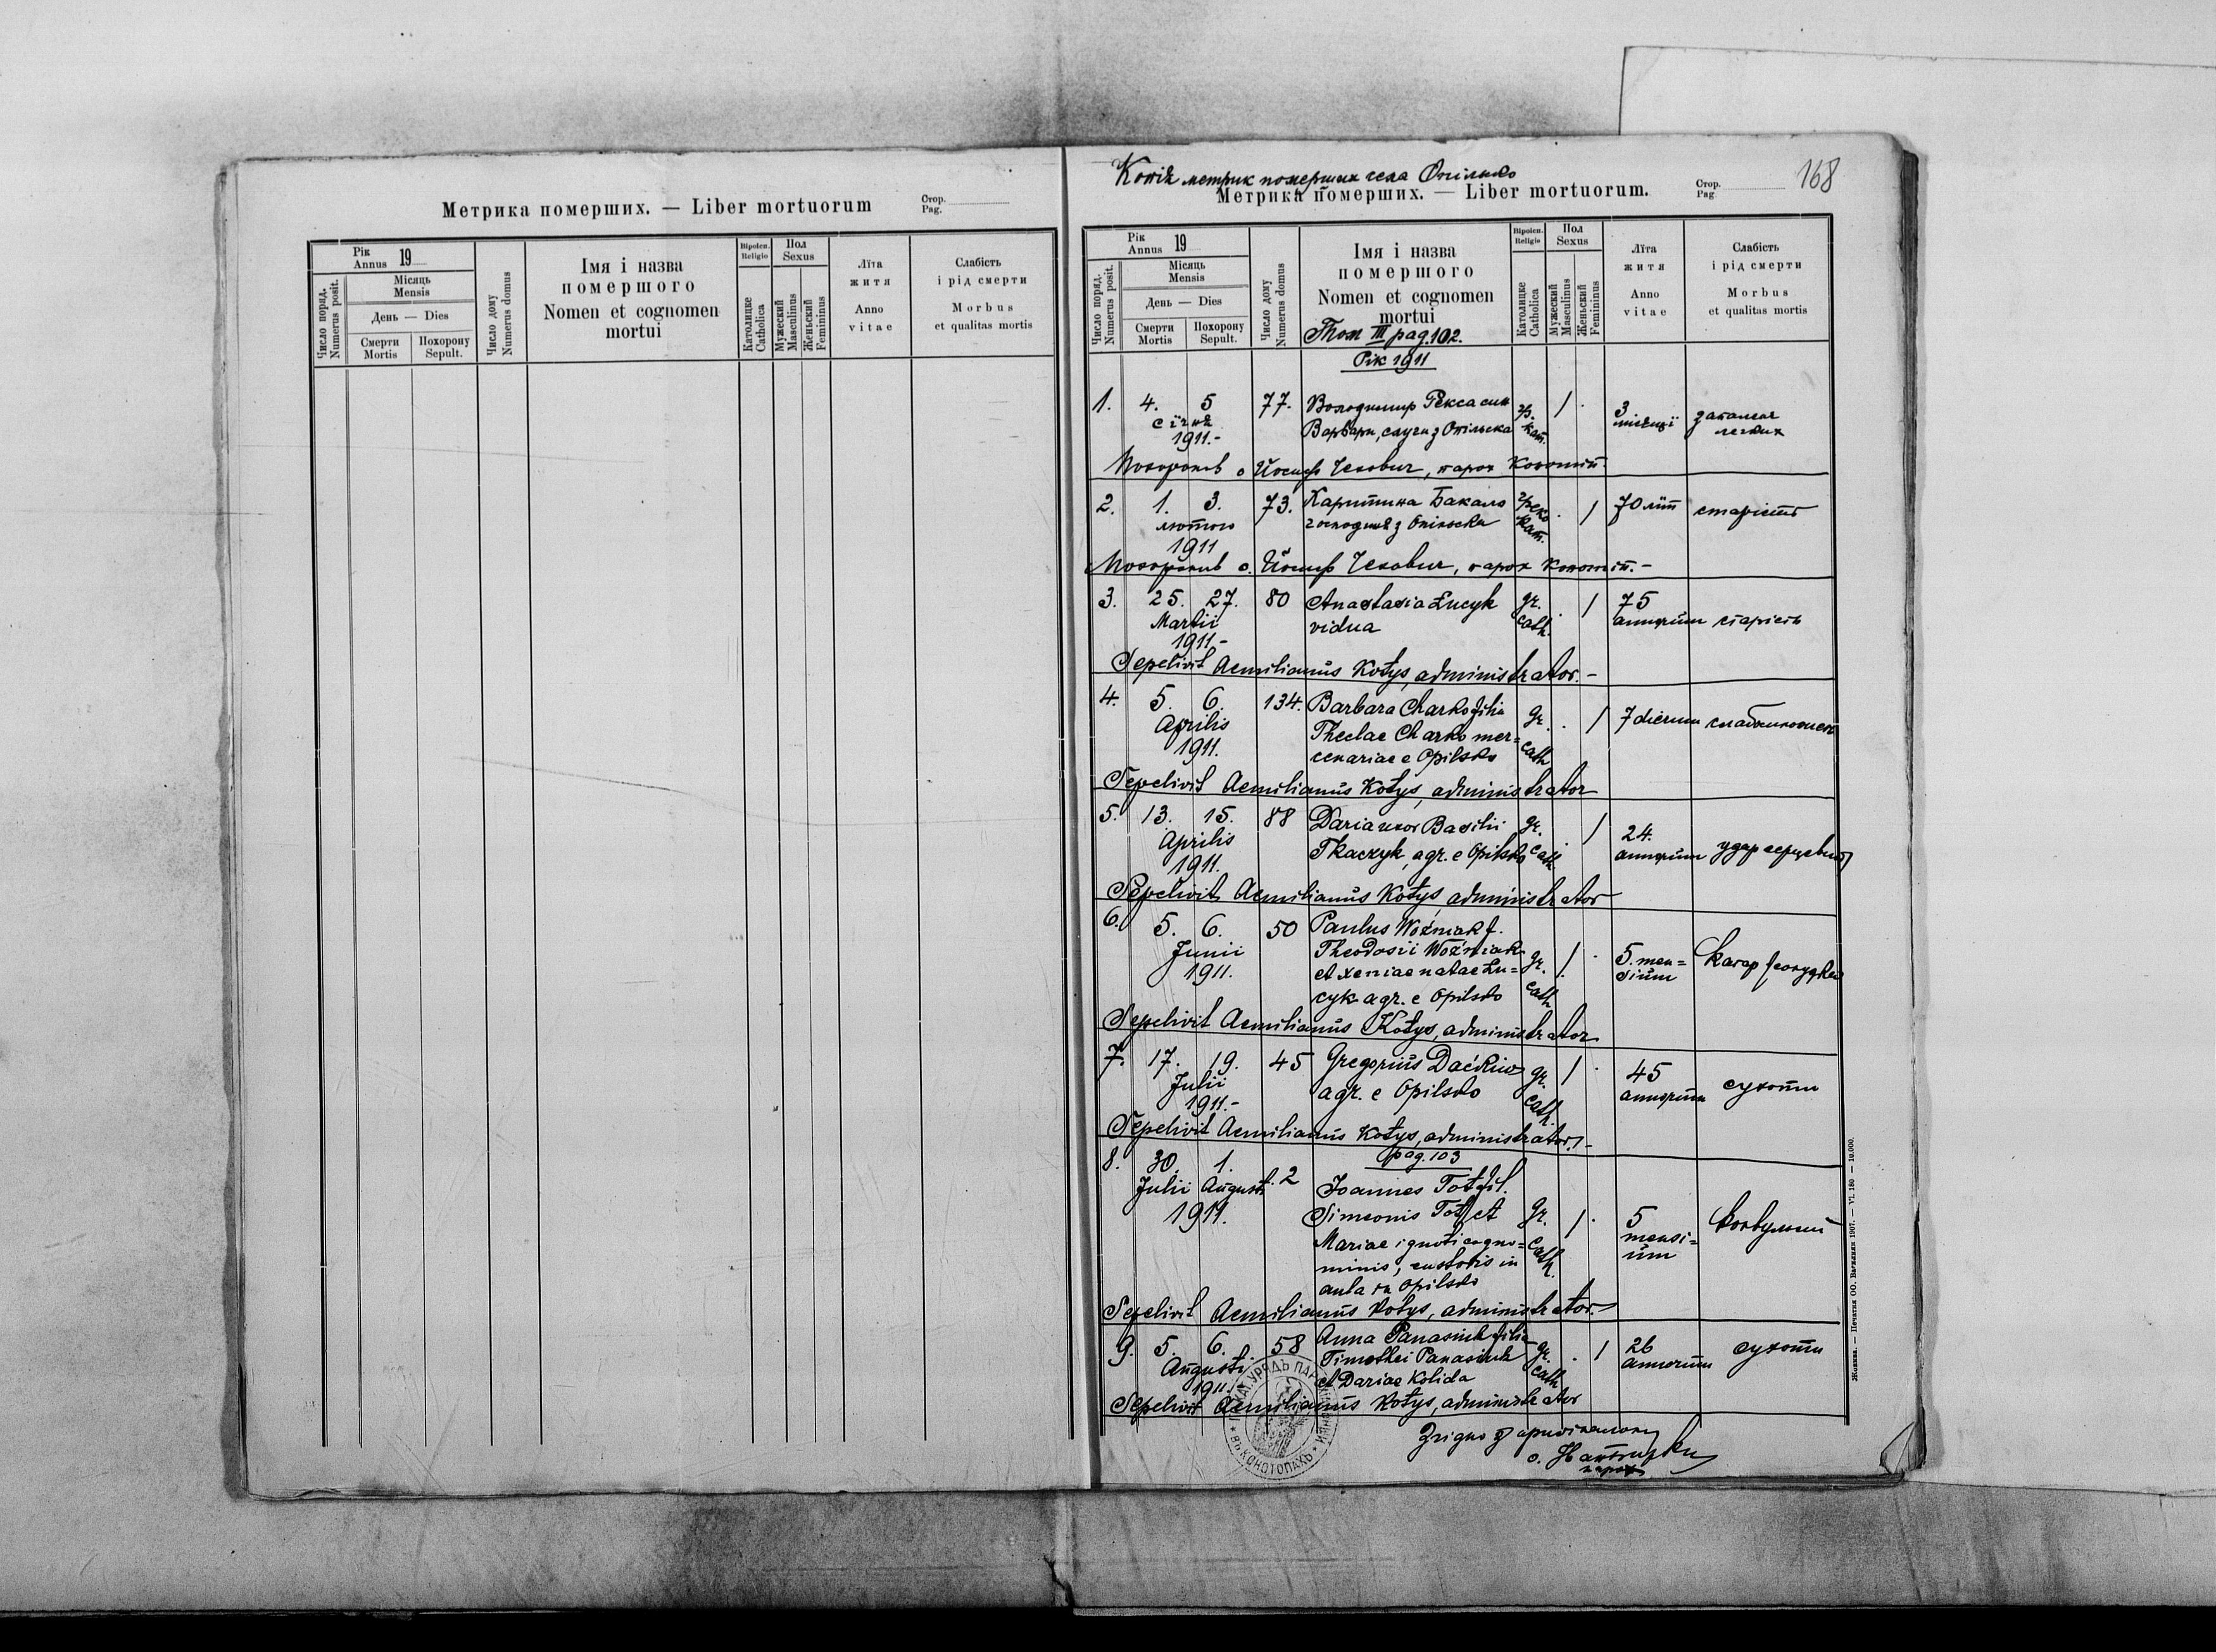 Метрика померших. — Liber mortuorum
Стор.
Pag.
Рік
Annus 19
Місяць
Mensis
День — Dies
Число поряд.
Numerus posit.
Смерти
Mortis
Похорону
Sepult.
Число дому
Numerus domus
Імя і назва
помершого
Nomen et cognomen
mortui
Віроісп.
Religio
Католицке
Catholica
Пол
Sexus
Мужеский
Masculinus
Женьский
Femininus
Лїта
житя
Anno
vitae
Слабість
і рід смерти
Morbus
et qualitas mortis
Копія метрик померших села Опілько
168
Метрика померших. — Liber mortuorum.
Стор.
Pag.
Рік
Annus 19
Місяць
Mensis
День — Dies
Число поряд.
Numerus posit.
Смерти
Mortis
Похорону
Sepult.
Число дому
Numerus domus
Імя і назва
помершого
Nomen et cognomen
mortui
Віроісп.
Religio
Католицке
Catholica
Пол
Sexus
Мужеский
Masculinus
Женьский
Femininus
Лїта
житя
Anno
vitae
Слабість
і рід смерти
Morbus
et qualitas mortis
Том III pag. 102.
Рік 1911
1. 4. 5 77. Володимир син гр. / . 3
сїчня Варвари, слуги з Опільска кат. місяцї легких
1911.-
Похоронив о Йосиф Чехович, парох Конотіп.
2. 1. 3. 73. Харитина Бакало греко . / 70 літ старість
лютого господиня з Опільска кат.
1911
Похоронив о. Йосиф Чехович, парох Конотіп.-
3. 25. 27. 80 Anastasia Łucyk gr. . / 75
Martii vidua cath. annorum старість
1911-
Sepelivit Aemilianus Kotys, administrator.-
4. 5. 6. 134. Barbara Charko filia gr. . / 7 dierum
Aprilis Theclae Charko mer=
1911. cenariae e Opilsko cath
Sepelivit Aemilianus Kotys, administrator
5. 13. 15. 88 Daria uxor Basilii gr. . / 24.
Aprilis Tkaczyk, agr. e Opilsko cath annorum удар серцевий
1911.
Sepelivit Aemilianus Kotys, administrator
6. 5. 6. 50 Paulus Woźniak f.
Junii Theodosii Woźniak gr. / . 5. men= Катар жолудка
1911. et Xeniae natae Łu= sium
cyk agr. e Opilsko cath
Sepelivit Aemilianus Kotys, administrator
7. 17. 19. 45 Gregorius Daćkiw gr. / . 45
Julii agr. e Opilsko cath. annorum сухоти
1911.-
Sepelivit Aemilianus Kotys, administrator.-
pag. 103
8. 30. 1. 2 Joannes Tot fil.
Julii Augusti Simeonis Tot et gr. / . 5
1911. Mariae ignoti cogno= cath. mensi=
minis, custodis in um
aula in Opilsko
Sepelivit Aemilianus Kotys, administrator.
9. 5. 6. 58 Anna Panasiuk filia gr. . / 26 сухоти
Augusti Timothei Panasiuk cath annorum
1911. et Dariae Kolida
Sepelivit Aemilianus Kotys, administrator
Згідно з оригіналом
о.
парох
ВЪ КОНОТОПАХЪ